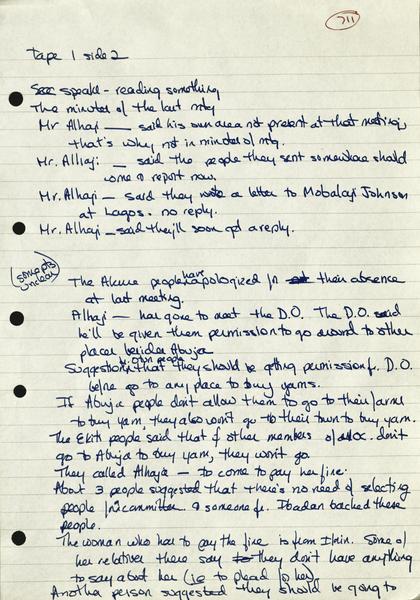 711
Tape 1 side 2
Sec speaks - reading something
The minutes of the last mtg
Mr Alhaji — said his own area not present at that meeting,
that's why not in minutes of mtg.
Mr. Alhaji — said the people they sent somewhere should
come & report now.
Mr. Alhaji - said they wrote a letter to Mobalaji Johnson
at Lagos. no reply.
Mr. Alhaji - said they'll soon get a reply.
(some pts unclear)
The Akure people have apologized for their absence
at last meeting.
Alhaji — has gone to meet the D.O. The D.O. said
he'll be given them permission to go around to other
places besides Abuja
Suggestion that they should be getting permission f. D.O.
before go to any place to buy yams.
If Abuja people don't allow them to go to their farms
to buy yam, they also won't go to their town to buy yam.
The Ekiti people said that if other members of assoc. don't
go to Abuja to buy yam, they won't go.
They called Alhaja — to come to pay her fine.
About 3 people suggested that there's no need of selecting
people for committee & someone fr. Ibadan backed these
people.
The woman who has to pay the fine is from Ilorin. Some of
her relatives there say they don't have anything
to say about her (ie to plead for her)
Another person suggested they should be going to